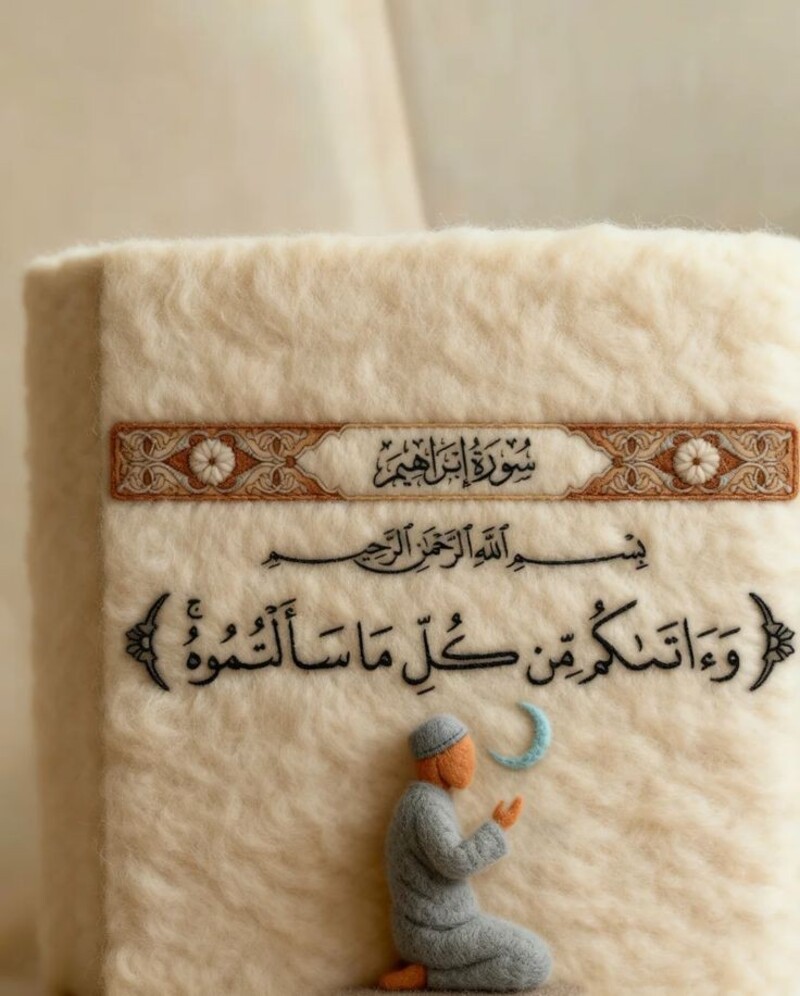 سُورَةُ إِبْرَاهِيمَ
بِسْمِ ٱللَّهِ ٱلرَّحْمَٰنِ ٱلرَّحِيمِ
﴿ وَءَاتَىٰكُم مِّن كُلِّ مَا سَأَلْتُمُوهُ ۚ ﴾